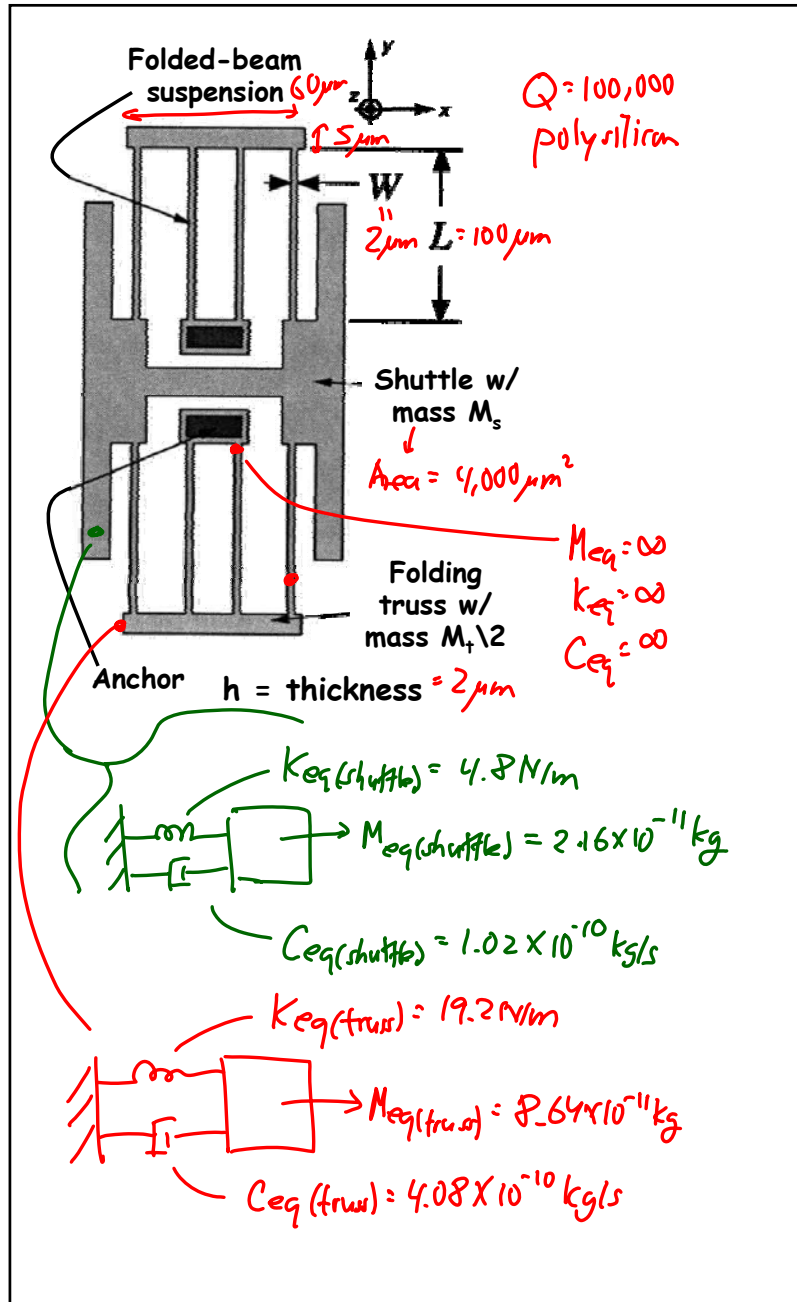 Folded-beam
suspension
60μm
y
z
x
Q = 100,000
polysilicon
5μm
W
"
2μm
L = 100μm
Shuttle w/
mass Ms
Area = 4,000μm²
Meq = ∞
Keq = ∞
Ceq = ∞
Folding
truss w/
mass Mt\2
Anchor
h = thickness = 2μm
Keq(shuttle) = 4.8 N/m
Meq(shuttle) = 2.16×10⁻¹¹ kg
Ceq(shuttle) = 1.02×10⁻¹⁰ kg/s
Keq(truss) = 19.2 N/m
Meq(truss) = 8.64×10⁻¹¹ kg
Ceq(truss) = 4.08×10⁻¹⁰ kg/s